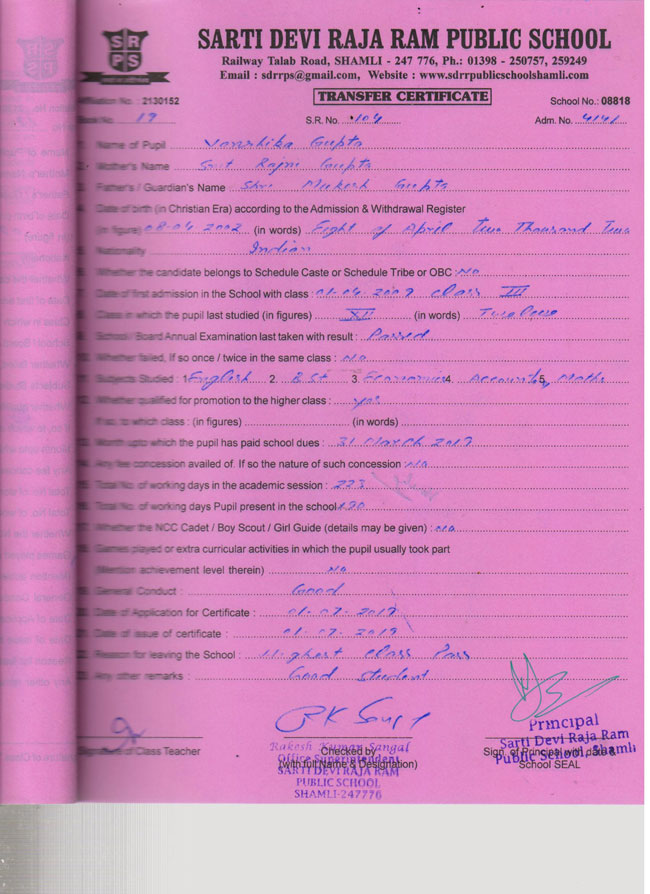 SRPS
SARTI DEVI RAJA RAM PUBLIC SCHOOL
Railway Talab Road, SHAMLI - 247 776, Ph.: 01398 - 250757, 259249
Email : sdrrps@gmail.com, Website : www.sdrrpublicschoolshamli.com
TRANSFER CERTIFICATE
Affiliation No. : 2130152 School No.: 08818
Book No. 19 S.R. No. 104 Adm. No. 4141
1. Name of Pupil Vanshika Gupta
2. Mother's Name Smt Rajni Gupta
3. Father's / Guardian's Name : Shri Mukesh Gupta
4. Date of birth (in Christian Era) according to the Admission & Withdrawal Register
(in figure) 08-04-2002 (in words) Eight of April Two Thousand Two
5. Nationality Indian
6. Whether the candidate belongs to Schedule Caste or Schedule Tribe or OBC : No
7. Date of first admission in the School with class : 01-04-2009 Class III
8. Class in which the pupil last studied (in figures) XII (in words) Twelve
9. School / Board Annual Examination last taken with result : Passed
10. Whether failed, If so once / twice in the same class : No
11. Subjects Studied : 1. English 2. B.St 3. Economics 4. Accounts 5. Maths
12. Whether qualified for promotion to the higher class : yes
If so, to which class : (in figures) (in words)
13. Month upto which the pupil has paid school dues : 31 March 2019
14. Any fee concession availed of. If so the nature of such concession : No
15. Total No. of working days in the academic session : 223
16. Total No. of working days Pupil present in the school 190
17. Whether the NCC Cadet / Boy Scout / Girl Guide (details may be given) : NA
18. Games played or extra curricular activities in which the pupil usually took part
(Mention achievement level therein) No
19. General Conduct : Good
20. Date of Application for Certificate : 01-07-2019
21. Date of issue of certificate : 01-07-2019
22. Reason for leaving the School : Highest Class Pass
23. Any other remarks : Good Student
Principal
Sarti Devi Raja Ram
Public School, Shamli
Signature of Class Teacher Checked by Sign. of Principal with date &
(with full Name & Designation) School SEAL
Rakesh Kumar Sangal
Office Superintendent
SARTI DEVI RAJA RAM
PUBLIC SCHOOL
SHAMLI-247776